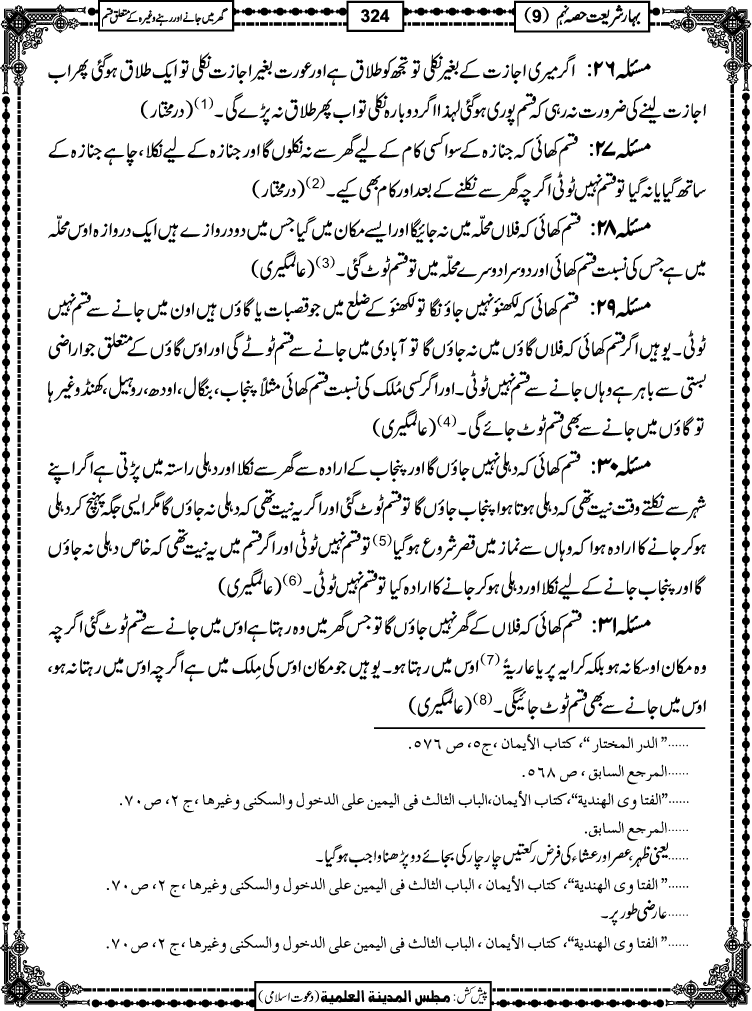 بہارشریعت حصہ نہم (9)
324
گھر میں جانے اور رہنے وغیرہ کے متعلق قسم
مسئلہ ۲۶: اگر میری اجازت کے بغیر نکلی تو تجھ کو طلاق ہے اور عورت بغیر اجازت نکلی تو ایک طلاق ہوگئی پھر اب
اجازت لینے کی ضرورت نہ رہی کہ قسم پوری ہوگئی لہٰذا اگر دوبارہ نکلی تو اب پھر طلاق نہ پڑے گی۔(1) (درمختار)
مسئلہ ۲۷: قسم کھائی کہ جنازہ کے سوا کسی کام کے لیے گھر سے نہ نکلوں گا اور جنازہ کے لیے نکلا، چاہے جنازہ کے
ساتھ گیا یا نہ گیا تو قسم نہیں ٹوٹی اگرچہ گھر سے نکلنے کے بعد اور کام بھی کیے۔(2) (درمختار)
مسئلہ ۲۸: قسم کھائی کہ فلاں محلّہ میں نہ جائیگا اور ایسے مکان میں گیا جس میں دو دروازے ہیں ایک دروازہ اوس محلّہ
میں ہے جس کی نسبت قسم کھائی اور دوسرا دوسرے محلّہ میں تو قسم ٹوٹ گئی۔(3) (عالمگیری)
مسئلہ ۲۹: قسم کھائی کہ لکھنؤ نہیں جاؤنگا تو لکھنؤ کے ضلع میں جو قصبات یا گاؤں ہیں اون میں جانے سے قسم نہیں
ٹوٹی۔ یوہیں اگر قسم کھائی کہ فلاں گاؤں میں نہ جاؤں گا تو آبادی میں جانے سے قسم ٹوٹے گی اور اوس گاؤں کے متعلق جو اراضی
بستی سے باہر ہے وہاں جانے سے قسم نہیں ٹوٹی۔ اور اگر کسی مُلک کی نسبت قسم کھائی مثلاً پنجاب، بنگال، اودھ، روہیل، کھنڈ وغیرہا
تو گاؤں میں جانے سے بھی قسم ٹوٹ جائے گی۔(4) (عالمگیری)
مسئلہ ۳۰: قسم کھائی کہ دہلی نہیں جاؤں گا اور پنجاب کے ارادہ سے گھر سے نکلا اور دہلی راستہ میں پڑتی ہے اگر اپنے
شہر سے نکلتے وقت نیت تھی کہ دہلی ہوتا ہوا پنجاب جاؤں گا تو قسم ٹوٹ گئی اور اگر یہ نیت تھی کہ دہلی نہ جاؤں گا مگر ایسی جگہ پہنچ کر دہلی
ہوکر جانے کا ارادہ ہوا کہ وہاں سے نماز میں قصر شروع ہوگیا(5) تو قسم نہیں ٹوٹی اور اگر قسم میں یہ نیت تھی کہ خاص دہلی نہ جاؤں
گا اور پنجاب جانے کے لیے نکلا اور دہلی ہوکر جانے کا ارادہ کیا تو قسم نہیں ٹوٹی۔(6) (عالمگیری)
مسئلہ ۳۱: قسم کھائی کہ فلاں کے گھر نہیں جاؤں گا تو جس گھر میں وہ رہتا ہے اوس میں جانے سے قسم ٹوٹ گئی اگرچہ
وہ مکان اوسکا نہ ہو بلکہ کرایہ پر یا عاریۃً (7) اوس میں رہتا ہو۔ یوہیں جو مکان اوس کی مِلک میں ہے اگرچہ اوس میں رہتا نہ ہو،
اوس میں جانے سے بھی قسم ٹوٹ جائیگی۔(8) (عالمگیری)
......”الدر المختار“، کتاب الأیمان، ج۵، ص ۵۷۶.
......المرجع السابق، ص ۵۶۸.
......”الفتاوی الهندیة“، کتاب الأیمان، الباب الثالث فی الیمین علی الدخول والسکنی وغیرها، ج ۲، ص۷۰.
......المرجع السابق.
......یعنی ظہر، عصر اور عشاء کی فرض رکعتیں چار چار کی بجائے دو پڑھنا واجب ہوگیا۔
......”الفتاوی الهندیة“، کتاب الأیمان، الباب الثالث فی الیمین علی الدخول والسکنی وغیرها، ج ۲، ص۷۰.
......عارضی طور پر۔
......”الفتاوی الهندیة“، کتاب الأیمان، الباب الثالث فی الیمین علی الدخول والسکنی وغیرها، ج ۲، ص۷۰.
پیش کش: مجلس المدینة العلمیة (دعوت اسلامی)